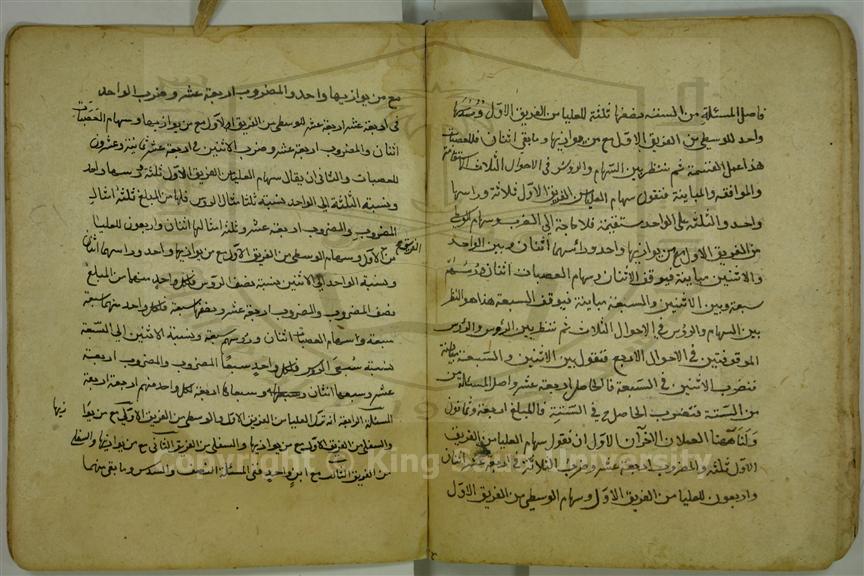 فاصل المسئلة من الستة نصفها ثلثة للعليا من الفريق الاول وسدسها
واحد للوسطى من الفريق الاول مع من يوازيها وما بقى اثنان فللعصبات
هذا عمل القسمة ثم ننظر بين السهام والرؤس في الاحوال الثلاث الاستقامة
والموافقة والمباينة فنقول سهام العليا من الفريق الاول ثلاثة وراسها
واحد والثلثة على الواحد مستقيمة فلا حاجة الى الضرب وسهام الوسطى
من الفريق الاول مع من يوازيها واحد ورائسهما اثنان وبين الواحد
والاثنين مباينة فيوقف الاثنان وسهام العصبات اثنان ورؤسهم
سبعة وبين الاثنين والسبعة مباينة فيوقف السبعة هذا هو النظر
بين السهام والرؤس في الاحوال الثلاث ثم ننظر بين الرؤس والرؤس
الموقوفتين في الاحوال الاربع فنقول بين الاثنين و السبعة مباينة
فنضرب الاثنين في السبعة فالحاصل اربعة عشر واصل المسئلة من
من الستة فنضرب الحاصل في الستة فالمبلغ اربعة وثمانون
ولنا ههنا العملان الاخران الاول ان نقول سهام العليا من الفريق
الاول ثلثة والمضروب اربعة عشر وضرب الثلاثة في اربعة عشر اثنان
واربعون للعليا من الفريق الاول وسهام الوسطى من الفريق الاول
مع من يوازيها واحد والمضروب اربعة عشر وضرب الواحد
في اربعة عشر اربعة عشر للوسطى من الفريق الاول مع من يوازيها وسهام العصبات
اثنان والمضروب اربعة عشر وضرب الاثنين في اربعة عشر ثمانية وعشرون
للعصبات والثاني ان يقال سهام العليا من الفريق الاول ثلثة وراسها واحد
ونسبة الثلثة الى الواحد نسبة ثلثة امثال الرؤس فلها من المبلغ ثلثة امثال
المضروب والمضروب اربعة عشر وثلثة امثالها اثنان واربعون للعليا
من الفريق الاول وسهام الوسطى من الفريق الاول مع من يوازيها واحد وراسهما اثنان
ونسبة الواحد الى الاثنين نسبة نصف الرؤس فلكل واحد منهما من المبلغ
نصف المضروب والمضروب اربعة عشر ونصفها سبعة فلكل واحد منهما سبعة
سبعة وسهام العصبات اثنان ورؤسهم سبعة ونسبة الاثنين الى السبعة
نسبة سبعي الرؤس فلكل واحد سبعا المضروب والمضروب اربعة
عشر وسبعها اثنان وسبعاها اربعة لكل واحد منهم اربعة اربعة
المسئلة الرابعة ان ترك العليا من الفريق الاول والوسطى من الفريق الاول مع من يوازيها
والسفلى من الفريق الاول مع من يوازيها والسفلى من الفريق الثاني مع من يوازيها والسفلى
من الفريق الثالث مع ابن واحد ففي المسئلة النصف والسدس وما بقى منهما